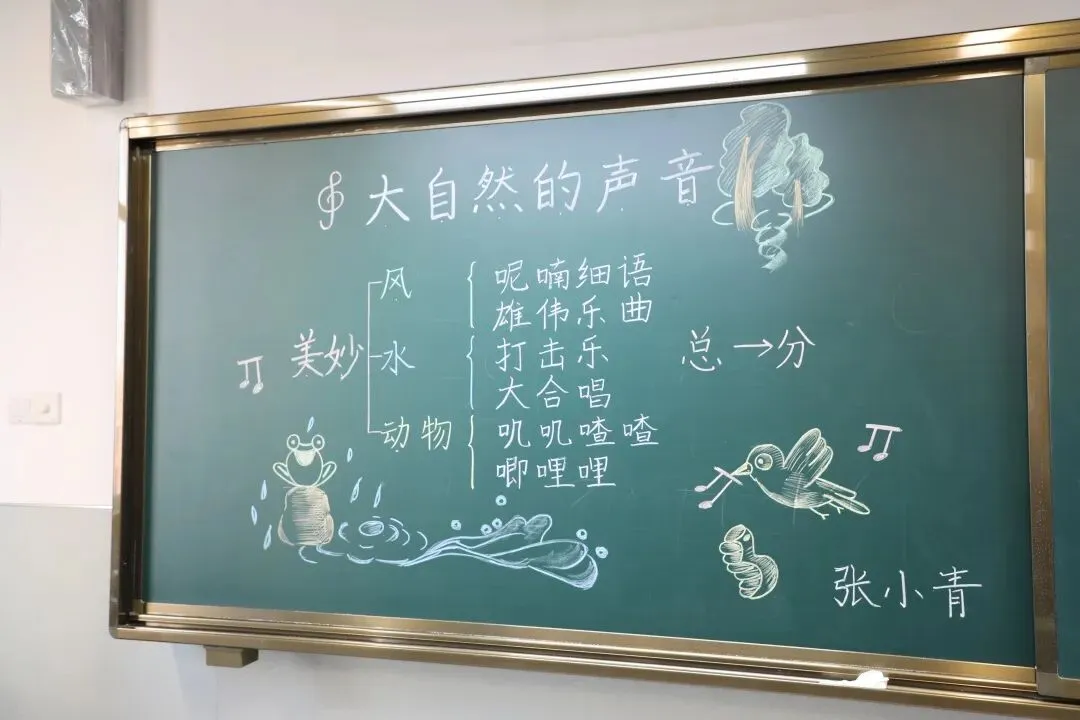 大自然的声音
美妙
风
呢喃细语
雄伟乐曲
水
打击乐
大合唱
动物
叽叽喳喳
唧哩哩
总→分
张小青